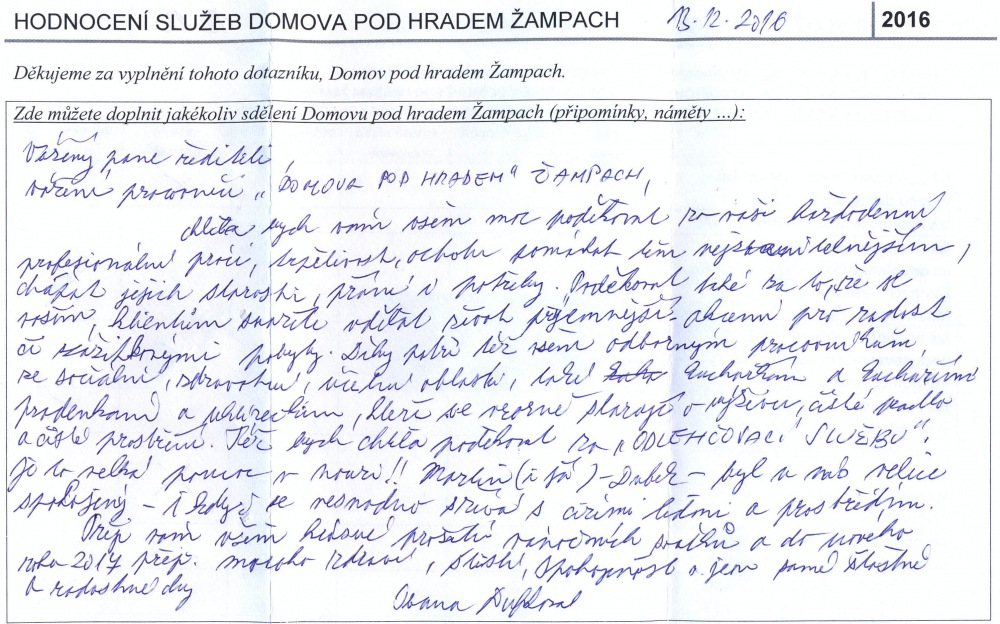 HODNOCENÍ SLUŽEB DOMOVA POD HRADEM ŽAMPACH 13.12.2016 2016
Děkujeme za vyplnění tohoto dotazníku, Domov pod hradem Žampach.
Zde můžete doplnit jakékoliv sdělení Domovu pod hradem Žampach (připomínky, náměty ...):
Vážený pane řediteli,
vážení pracovníci „DOMOVA POD HRADEM“ ŽAMPACH,
chtěla bych vám všem moc poděkovat za vaši každodenní
profesionální práci, trpělivost, ochotu pomáhat těm
chápat jejich starosti, přání i potřeby. Poděkovat také za to, že se
vašim klientům snažíte udělat život příjemnější - akcemi pro radost
či pobyty. Díky patří též všem odborným pracovníkům
ze sociální, zdravotní, oblasti, také kuchařkám a kuchařům
pradlenkám a uklízečkám, kteří se vzorně starají o výživu, čisté prádlo
a čisté prostředí. Též bych chtěla poděkovat za „ODLEHČOVACÍ SLUŽBU“.
Je to velká pomoc v nouzi!! Martin (i já) - - byl u vás velice
spokojený - i když se nesnadno s cizími lidmi a prostředím.
Přeji vám všem krásné prožití vánočních svátků a do nového
roku 2017 přeji mnoho zdraví, štěstí, spokojenosti a jen samé šťastné
a radostné dny